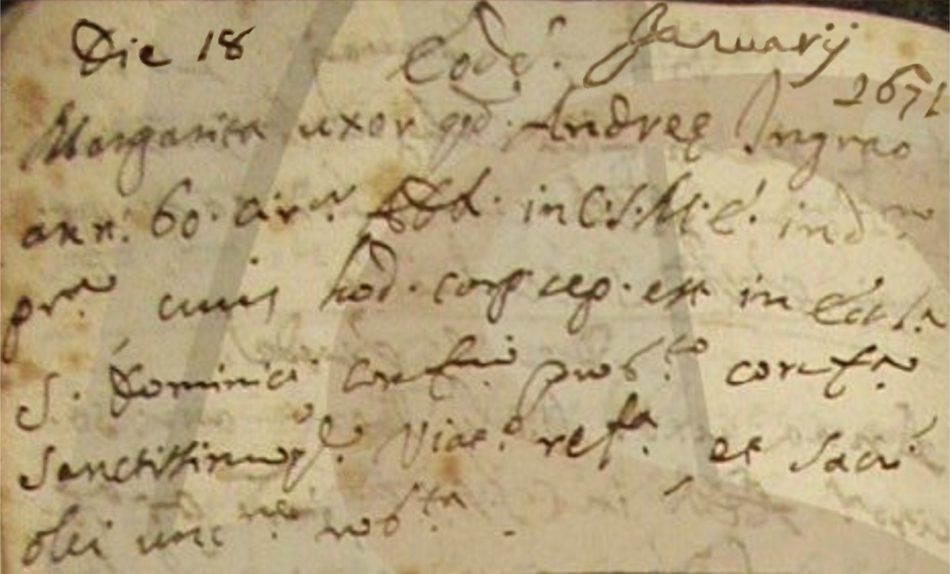 Die 18 Eod: Januarij
1671
Margarita uxor qd. Andreę Ingrao
ann: 60. cir: Ob. in C. S. M. E. in d
pra cuius hod. corp sep. est in Eccla
S. Dominici confess prob.to confes
Sanctissimoq. Viat.o refta. et Sacri
olei unc.ne rob.ta